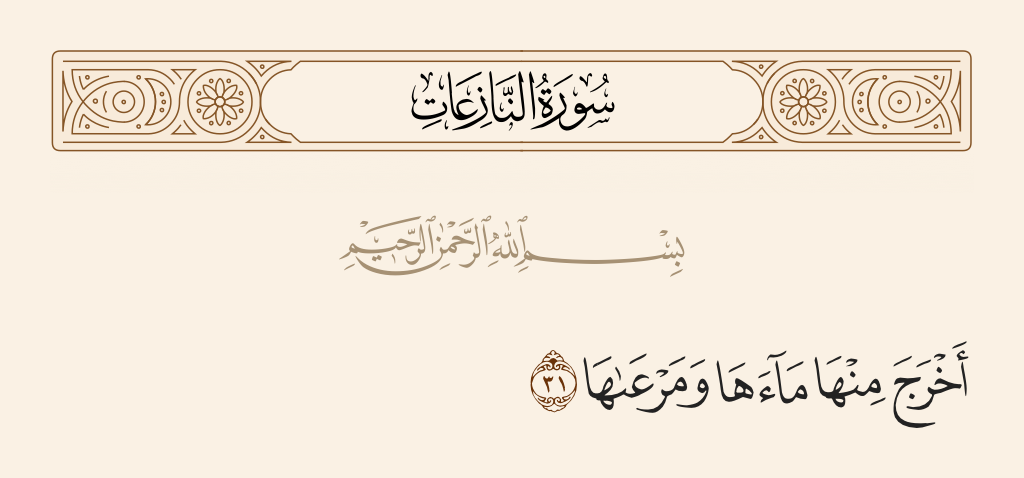 سُورَةُ النَّازِعَاتِ
بِسْمِ ٱللَّهِ ٱلرَّحْمَٰنِ ٱلرَّحِيمِ
أَخْرَجَ مِنْهَا مَآءَهَا وَمَرْعَىٰهَا ٣١